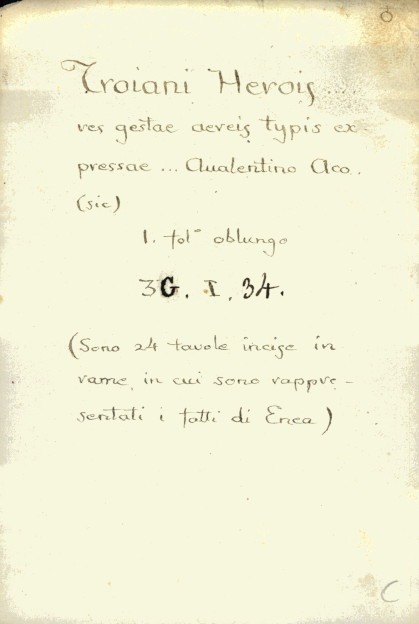 Troiani Herois .....
res gestae aereis typis ex-
pressae ... Qualentino Aco.
(sic)
1. folº oblungo
3G. I. 34.
(Sono 24 tavole incise in
rame, in cui sono rappre-
sentati i fatti di Enea)
C